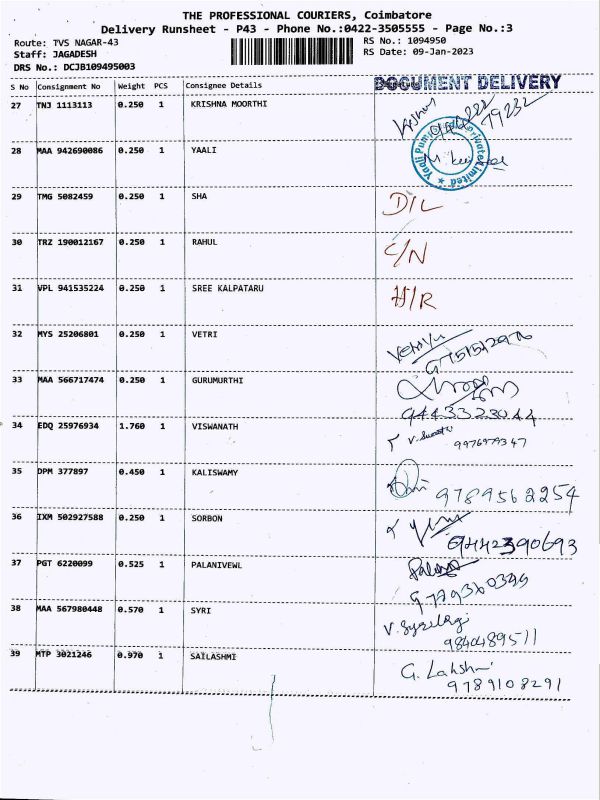 THE PROFESSIONAL COURIERS, Coimbatore
Delivery Runsheet - P43 - Phone No.:0422-3505555 - Page No.:3
Route: TVS NAGAR-43
Staff: JAGADESH
DRS No.: DCJB109495003
RS No.: 1094950
RS Date: 09-Jan-2023
S No Consignment No Weight PCS Consignee Details
DOCUMENT DELIVERY
27 TNJ 1113113 0.250 1 KRISHNA MOORTHI
79232
28 MAA 942690086 0.250 1 YAALI
Yaali Private Limited
29 TMG 5082459 0.250 1 SHA D/L
30 TRZ 190012167 0.250 1 RAHUL C/N
31 VPL 941535224 0.250 1 SREE KALPATARU H/R
32 MYS 25206801 0.250 1 VETRI
33 MAA 566717474 0.250 1 GURUMURTHI
9443323044
34 EDQ 25976934 1.760 1 VISWANATH
35 DPM 377897 0.450 1 KALISWAMY
9789562254
36 IXM 502927588 0.250 1 SORBON
9442390693
37 PGT 6220099 0.525 1 PALANIVEWL
38 MAA 567980448 0.570 1 SYRI
9840489511
39 MTP 3021246 0.970 1 SAILASHMI
G. Lakshmi
9789108291